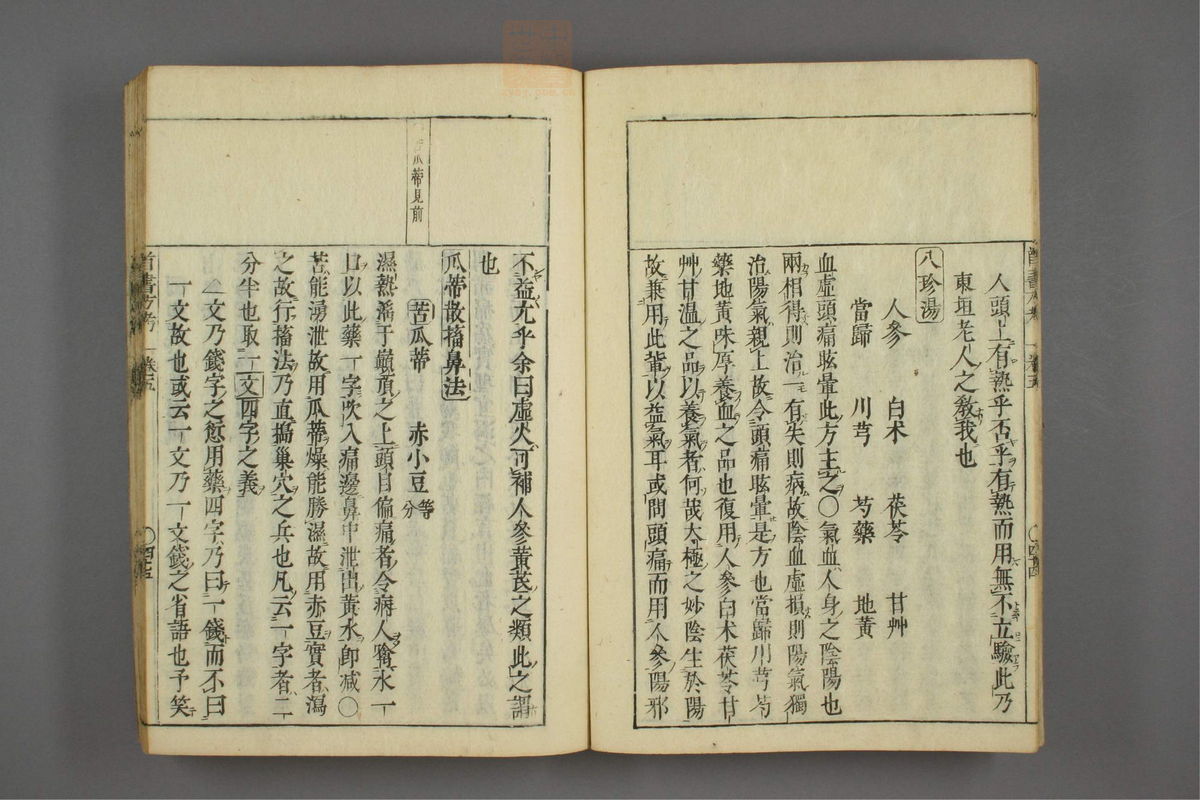 人頭上有熱乎否乎有熱而用無不立驗此乃
東垣老人之教我也
八珍湯
人參 白朮 茯苓 甘艸
當歸 川芎 芍藥 地黃
血虛頭痛眩暈此方主之〇氣血人身之陰陽也
兩相得則治一有失則病故陰血虛損則陽氣獨
治陽氣親上故令頭痛眩暈是方也當歸川芎芍
藥地黃味厚養血之品也復用人參白朮茯苓甘
艸甘溫之品以養氣者何哉太極之妙陰生於陽
故兼用此輩以益氣耳或問頭痛而用人參陽邪
不益亢乎余曰虛火可補人參黃芪之類此之謂
也
瓜蒂散搐鼻法
苦瓜蒂 赤小豆 等分
苦瓜蒂見前
濕熱滀于巔頂之上頭目偏痛者令病人噙水一
口以此藥一字吹入痛邊鼻中泄出黃水卽減〇
苦能湧泄故用瓜蒂燥能勝濕故用赤豆實者瀉
之故行搐法乃直搗巢穴之兵也凡云一字者二
分半也取一文四字之義
一文乃錢字之愆用藥四字乃曰一錢而不曰
一文故也或云一文乃一文錢之省語也予笑